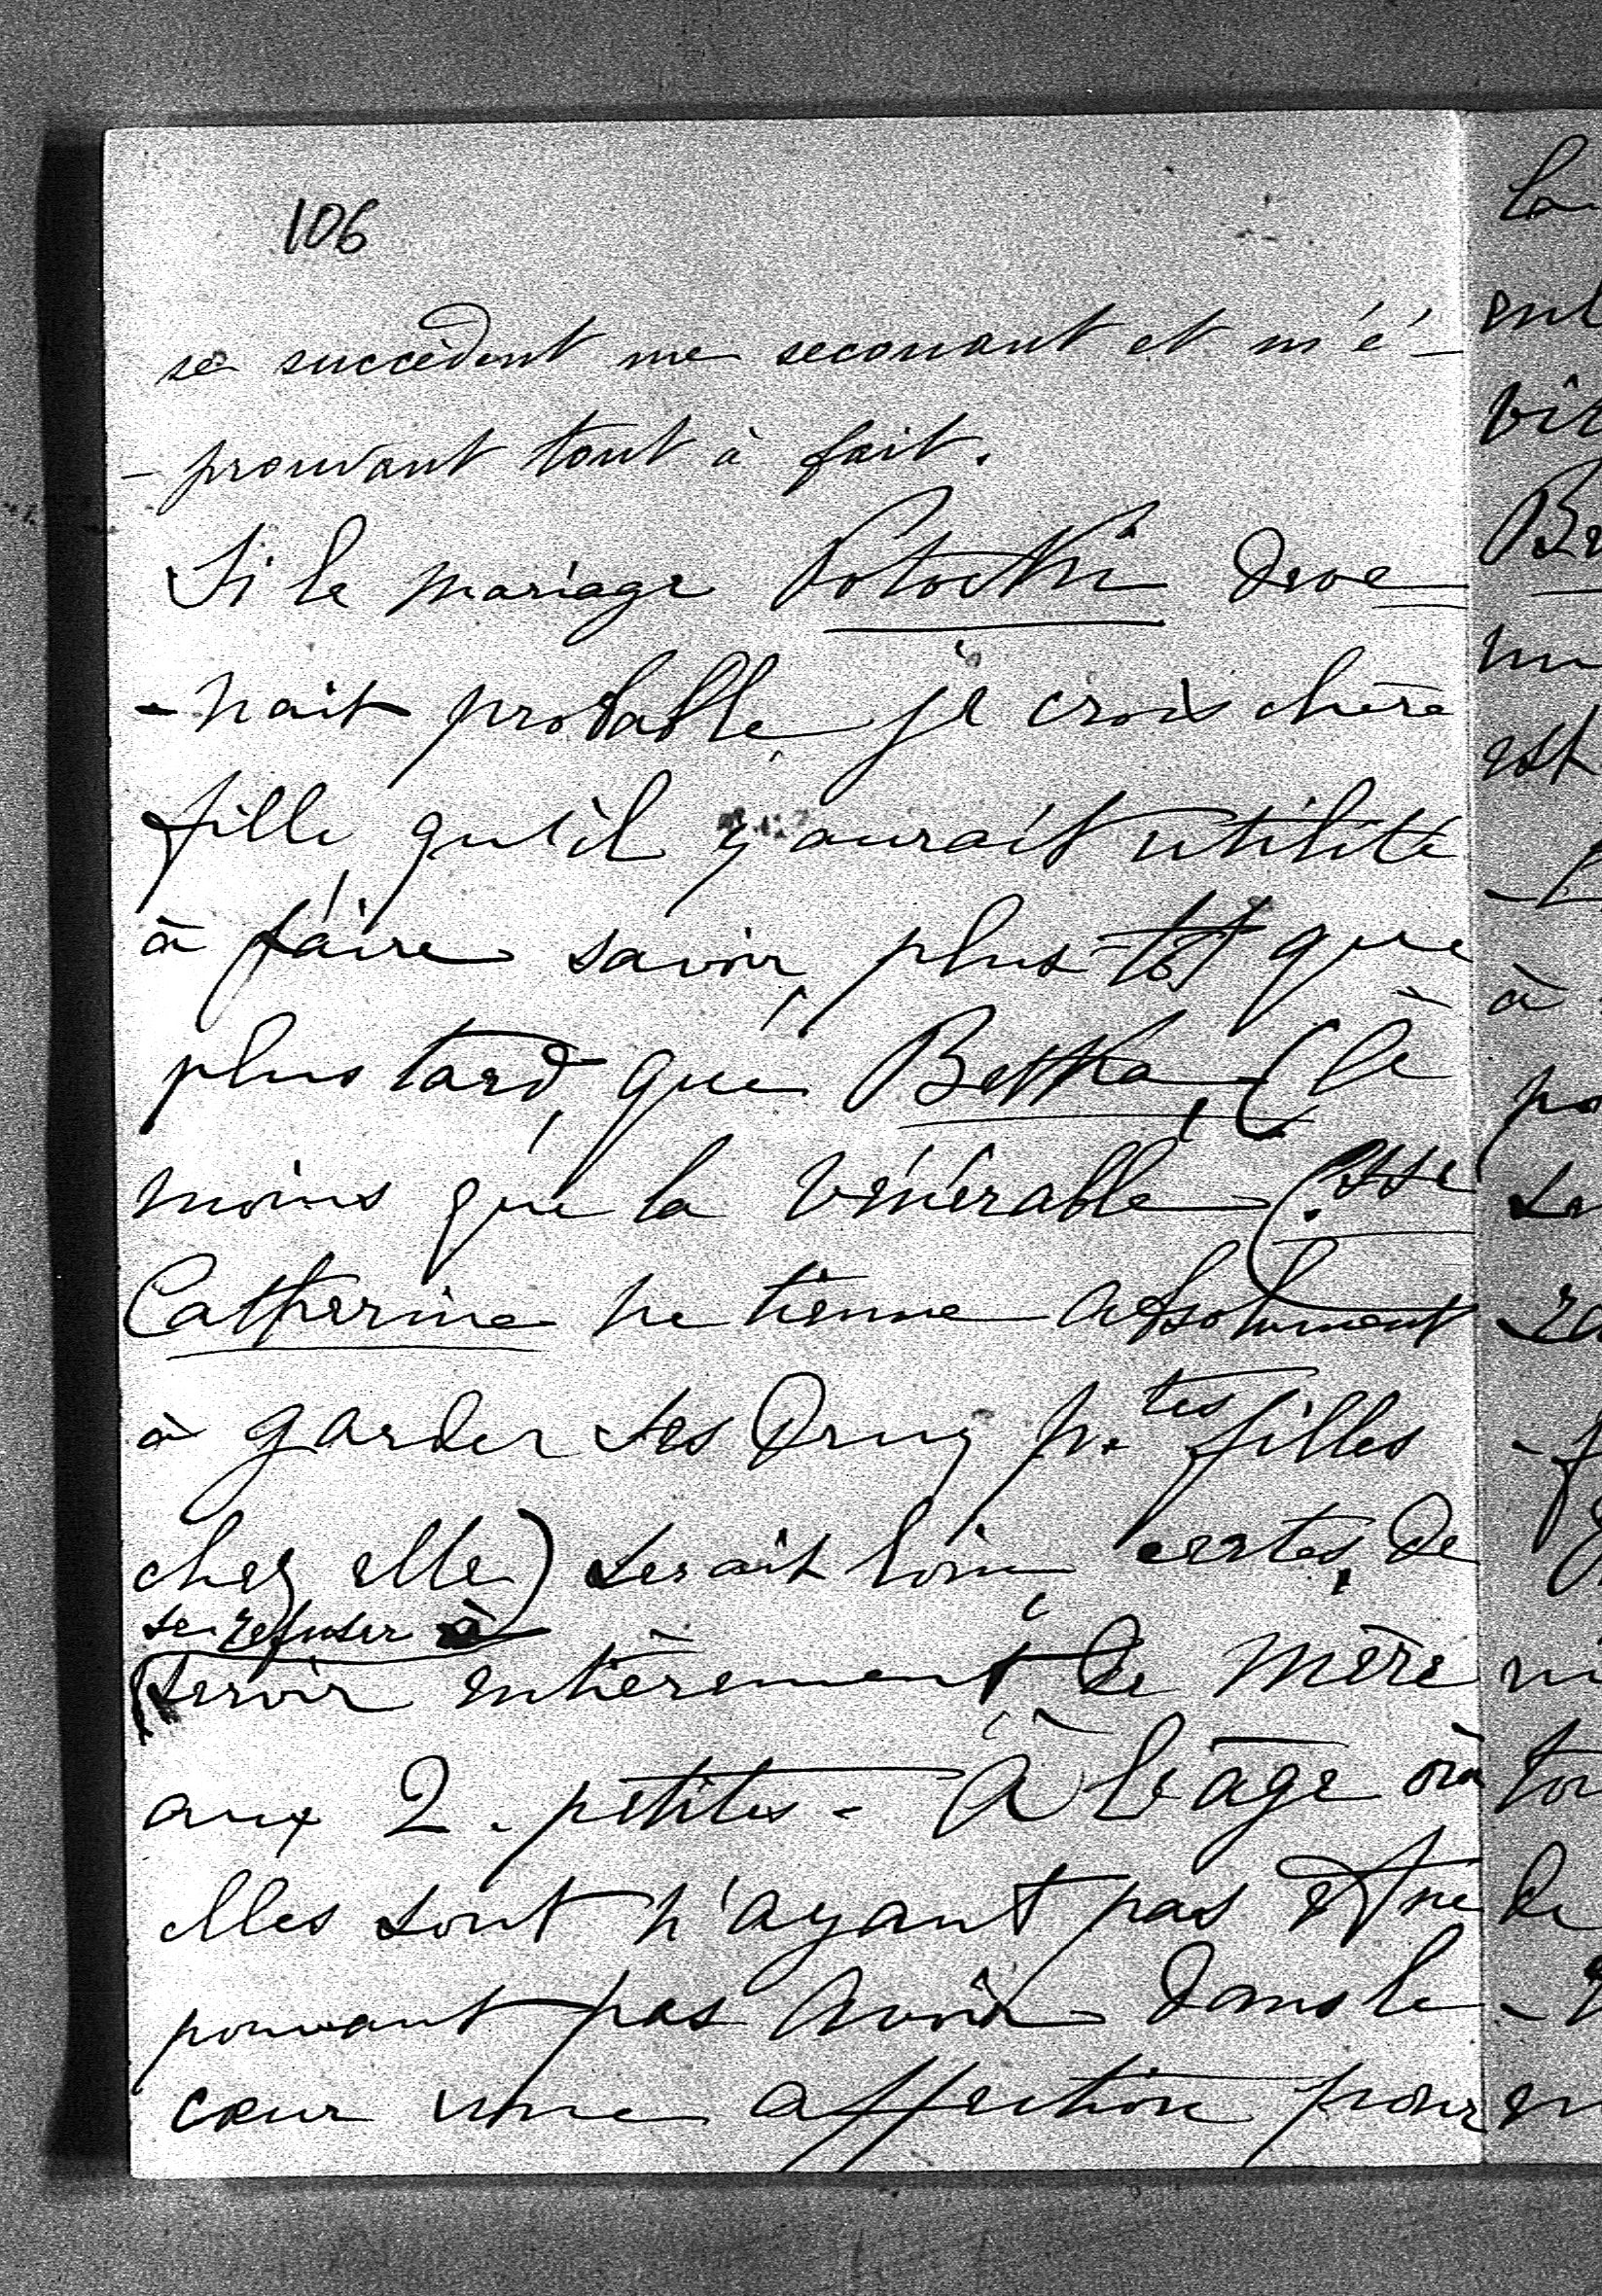 106
se succèdent me secouant et m'é-
-prouvant tout à fait.
Si le mariage Potocki deve
-nait probable, je crois chère
fille, qu'il y aurait utilité
à faire savoir, plus-tôt que
plus tard, que Betka, (à
moins que la vénérable Csse
Catherine ne tienne absolument
à garder ses deux p.tes filles
chez elle) serait loin, certes, de
se refuser à
servir entièrement de mère
aux 2. petites. À l'âge où
elles sont n'ayant pas et ne
pouvant pas avoir dans le
cœur une affection pour